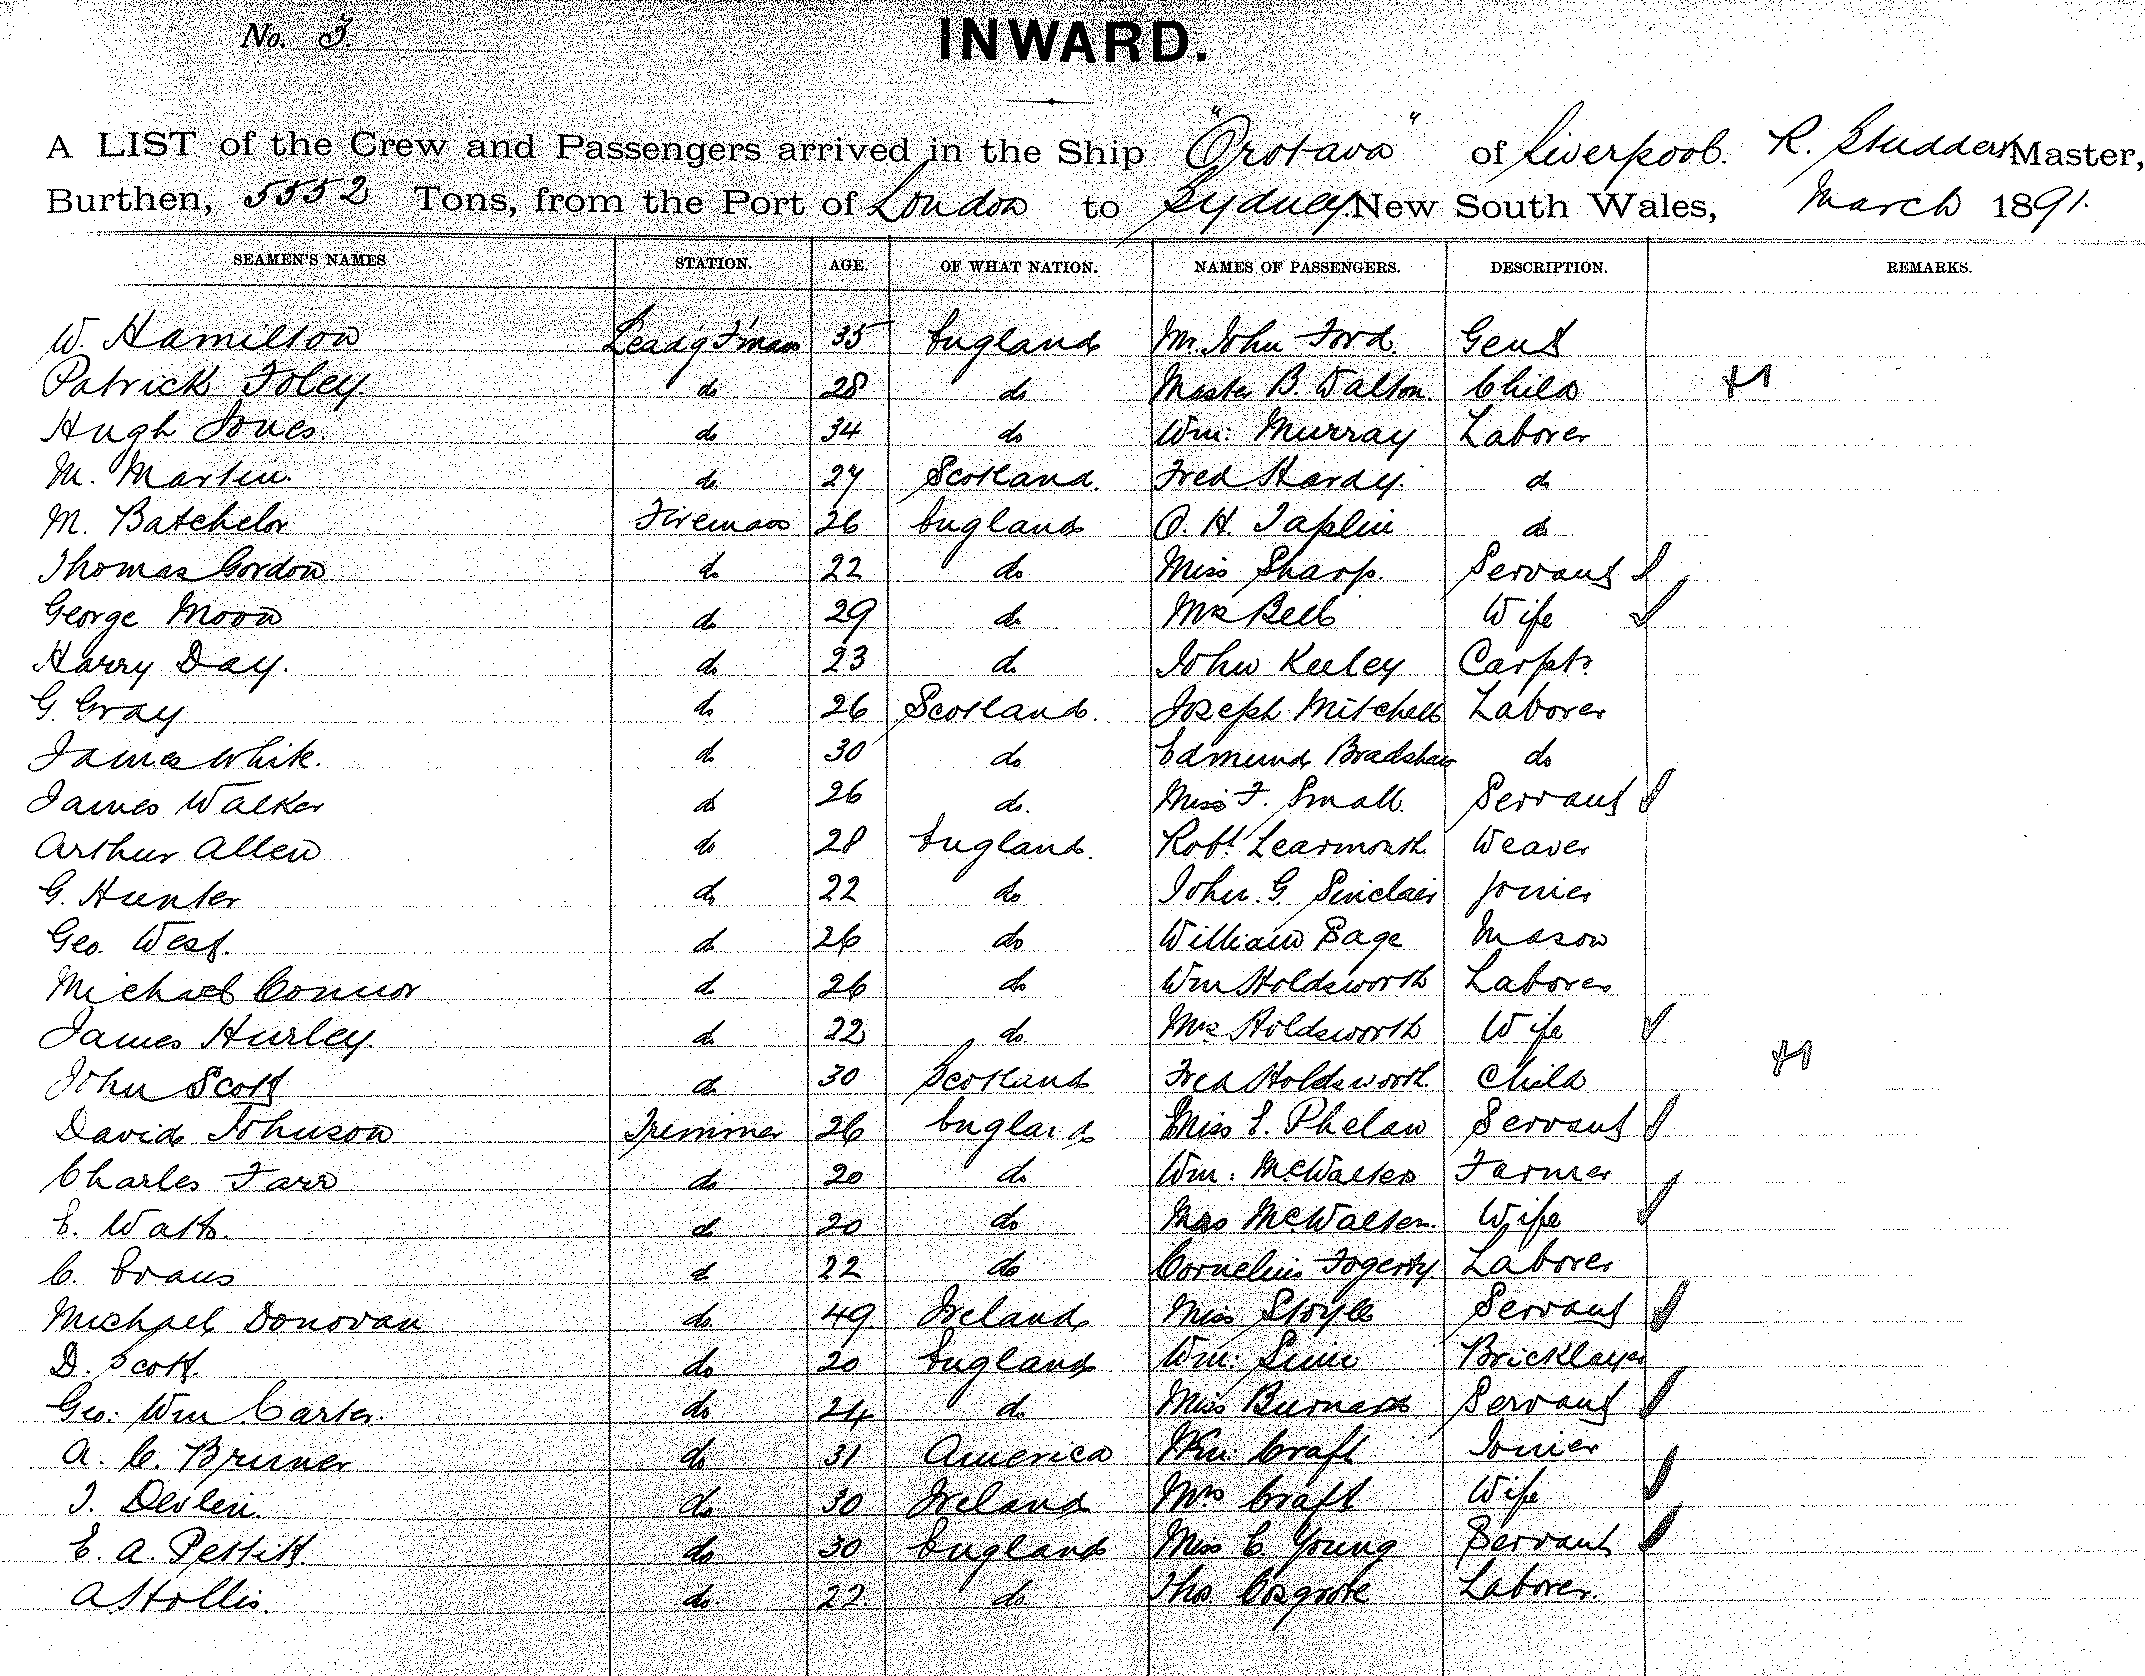 No. 3.
INWARD.
A LIST of the Crew and Passengers arrived in the Ship "Orotava" of Liverpool. R. Studdert Master,
Burthen, 5552 Tons, from the Port of London to Sydney New South Wales, March 1891.
SEAMEN'S NAMES STATION. AGE. OF WHAT NATION. NAMES OF PASSENGERS. DESCRIPTION. REMARKS.
W. Hamilton Leadg F'man 35 England Mr. John Ford. Gent
Patrick Foley. do 28 do Master B. Walton. Child
Hugh Jones. do 34 do Wm: Murray Laborer
M. Martin. do 27 Scotland. Fred Hardy. do
M. Batchelor Fireman 26 England O. H. Taplin do
Thomas Gordon do 22 do Miss Sharp. Servant
George Moon do 29 do Mrs Bell Wife
Harry Day. do 23 do John Keeley Carptr
G. Gray do 26 Scotland. Joseph Mitchell Laborer
James White. do 30 do Edmund Bradshaw do
James Walker do 26 do. Miss F. Small. Servant
Arthur Allen do 28 England. Robt. Learmonth Weaver
G. Hunter do 22 do John. G. Sinclair Joiner
Geo. West. do 26 do William Page Mason
Michael Connor do 26 do Wm Holdsworth Laborer
James Hurley. do 22 do Mrs Holdsworth Wife
John Scott do 30 Scotland Fred Holdsworth Child
David Johnson Trimmer 26 England Miss E. Phelan Servant
Charles Farr do 20 do Wm: McWalter Farmer
E. Watts. do 20 do Mrs McWalter. Wife
C. Evans do 22 do Cornelius Fogerty. Laborer
Michael Donovan do 49 Ireland Miss Stoyle Servant
D. Scott. do 20 England Wm: Sim Bricklayer
Geo. Wm Carter. do 24 do Miss Burnard Servant
A. C. Bruner do 31 America Wm: Craft Joiner
J. Devlin. do 30 Ireland Mrs Craft Wife
E. A. Pettitt do 30 England Miss C Young Servant
A Hollis. do 22 do Thos Cosgrove Laborer.